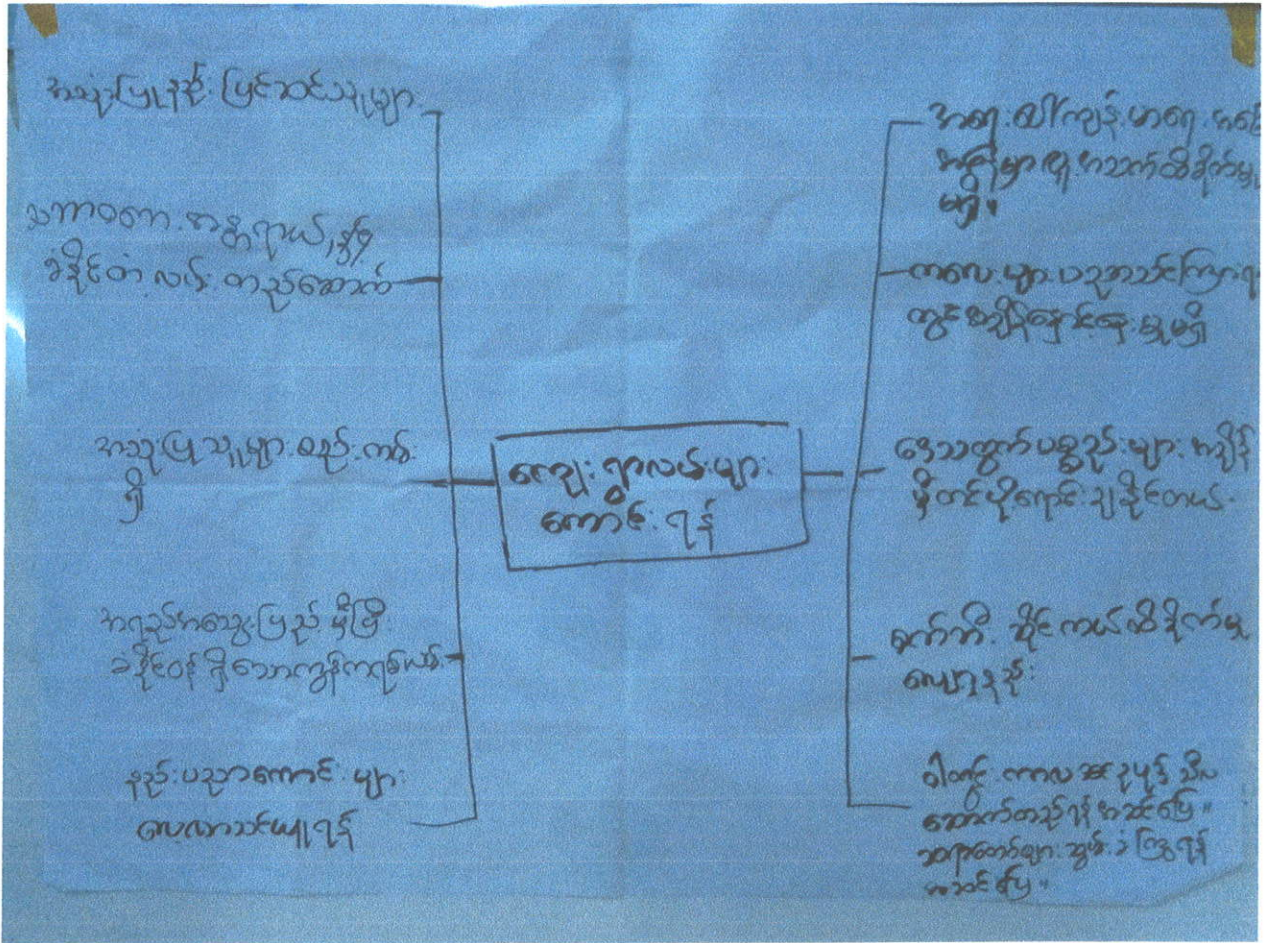 အသုံးပြုနည်း ပြင်ဆင်သူများ
သဘာဝဘေး အန္တရာယ်နှင့်
ခံနိုင်တဲ့ လမ်း တည်ဆောက်
အသုံးပြုသူများ စည်းကမ်း
ရှိ
အရည်အသွေးပြည့် မှီပြီး
ခံနိုင်ဝန် ရှိသော
နည်းပညာကောင်း များ
လေ့လာသင်ယူရန်
ကျေးရွာလမ်းများ
ကောင်းရန်
အရေးပေါ် ကျန်းမာရေး
အသက်ထိခိုက်မှု
မရှိ။
ကလေးများ ပညာသင်ကြား
တွင် အချိန်နှောင့်နှေးမှုမရှိ
ဒေသထွက်ပစ္စည်းများ အချိန်
မှီတင်ပို့ရောင်းချနိုင်တယ်
ထိခိုက်မှု
လျော့နည်း
ဝါတွင်း ကာလ ဥပုဒ် သီလ
ဆောက်တည်ရန် အဆင်ပြေ။
ဆရာတော်များ ဆွမ်းခံကြွရန်
အဆင်ပြေ။